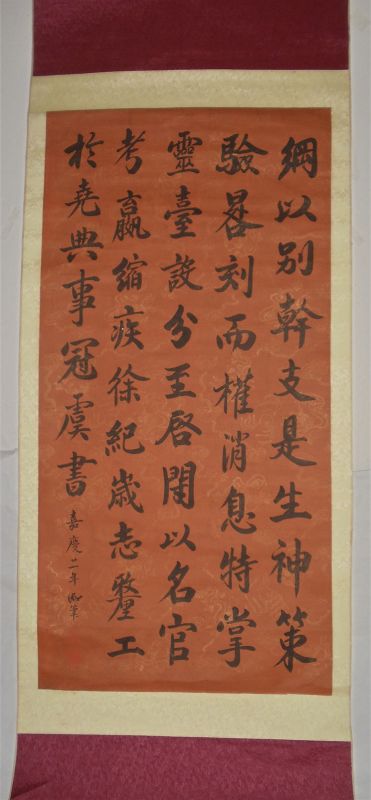 綱以別幹支是生神策
驗晷刻而權消息特掌
靈臺設分至啓閉以名官
考贏縮疾徐紀歲志釐工
於堯典事冠虞書
嘉慶二年御筆